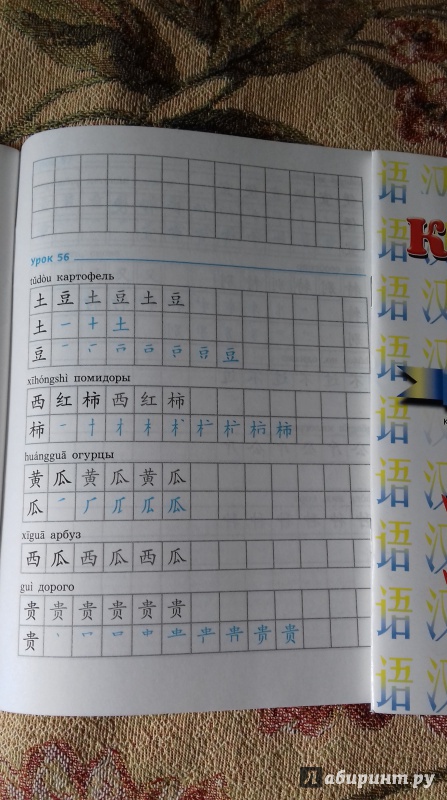 Урок 56
tǔdòu картофель
土 豆 土 豆 土 豆
土 一 十 土
豆 豆
xīhóngshì помидоры
西 红 柿 西 红 柿
柿 一 十 才 木 柿
huánggūā огурцы
黄 瓜 黄 瓜 黄 瓜
瓜 瓜
xīgūā арбуз
西 瓜 西 瓜 西 瓜
guì дорого
贵 贵 贵 贵 贵 贵
贵 丶 口 中 贵 贵
语 汉
语
К
语 汉
语 汉
语
语 汉
语 汉
语 汉
语 汉
Лабиринт.ру